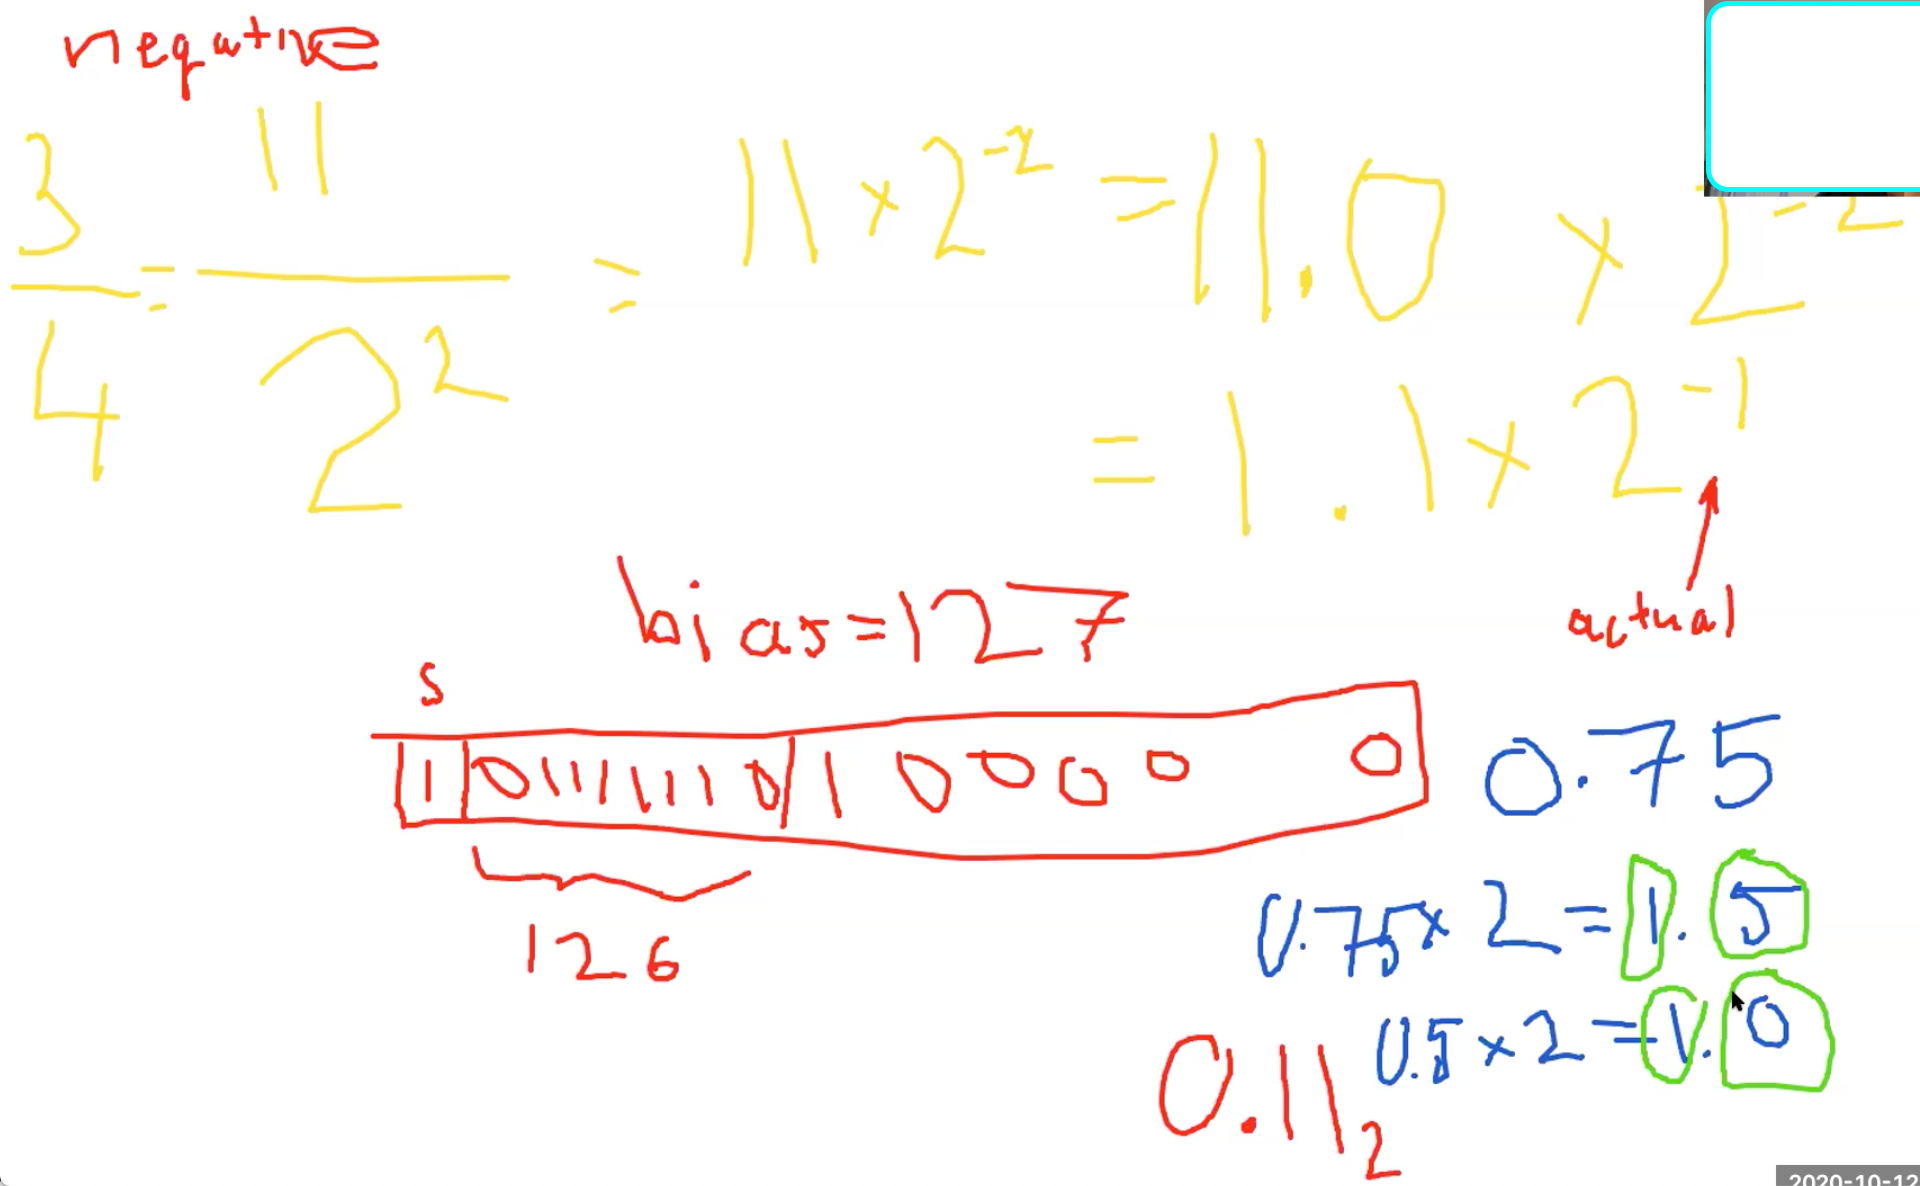 negative
3/4 = 11/2² = 11 × 2⁻² = 11.0 × 2⁻²
= 1.1 × 2⁻¹
actual
bias=127
s
1 01111110 1 0 0 0 0 0
126
0.75
0.75 × 2 = 1.5
0.5 × 2 = 1.0
0.11₂
2020-10-12